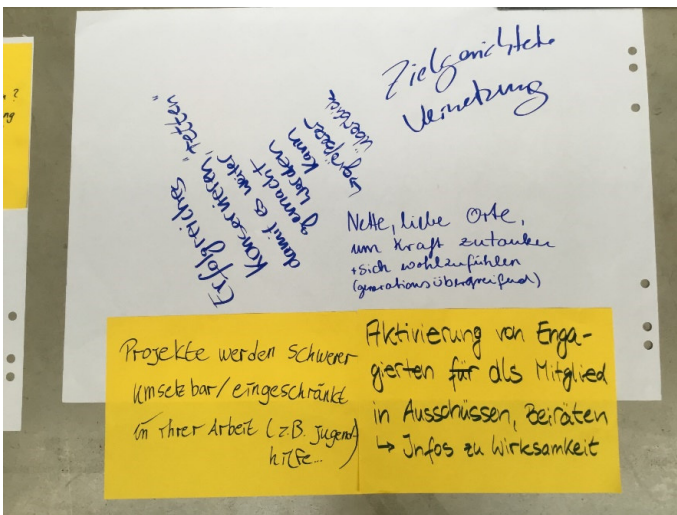 Zielgerichtete
Vernetzung
Erfolgreiches
konservieren, "retten"
damit es weiter
gemacht
werden
kann
→ größerer
Überblick
Nette, liebe Orte,
um Kraft zutanken
+ sich wohlzufühlen
(generationsübergreifend)
Projekte werden schwerer
umsetzbar/eingeschränkt
in ihrer Arbeit (z.B. Jugend
hilfe...)
Aktivierung von Enga-
gierten für als Mitglied
in Ausschüssen, Beiräten
↳ Infos zu Wirksamkeit
?
ng